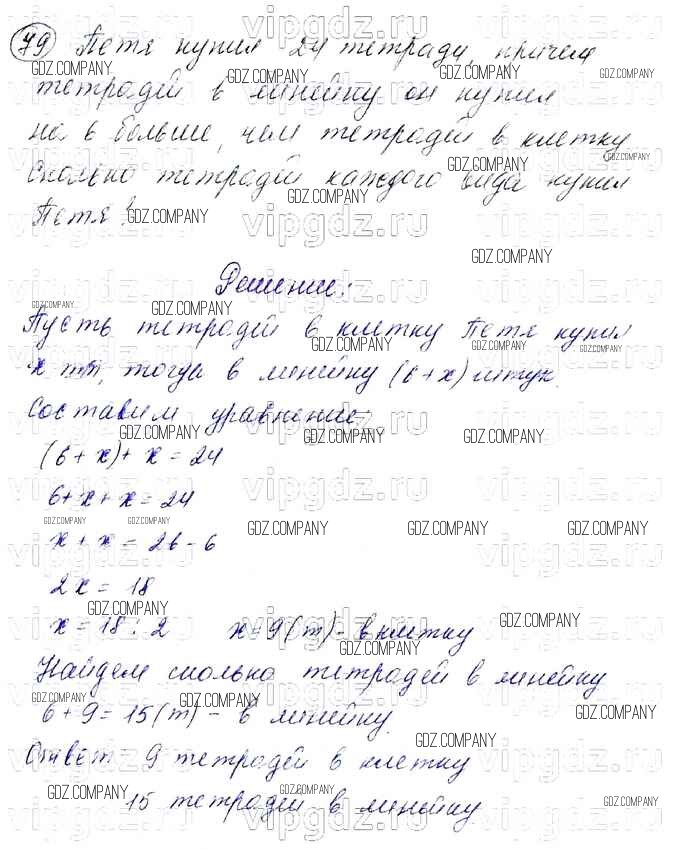 79 Петя купил 24 тетради, причем
тетрадей в линейку он купил
на 6 больше, чем тетрадей в клетку
Сколько тетрадей каждого вида купил
Петя?
Решение:
Пусть тетрадей в клетку Петя купил
x шт, тогда в линейку (6+x) штук.
Составим уравнение:
(6+x)+x=24
6+x+x=24
x+x=26-6
2x=18
x=18:2 x=9(т)-в клетку
Найдем сколько тетрадей в линейку
6+9=15(т)-в линейку.
Ответ: 9 тетрадей в клетку
15 тетрадей в линейку
vipgdz.ru
GDZ.COMPANY